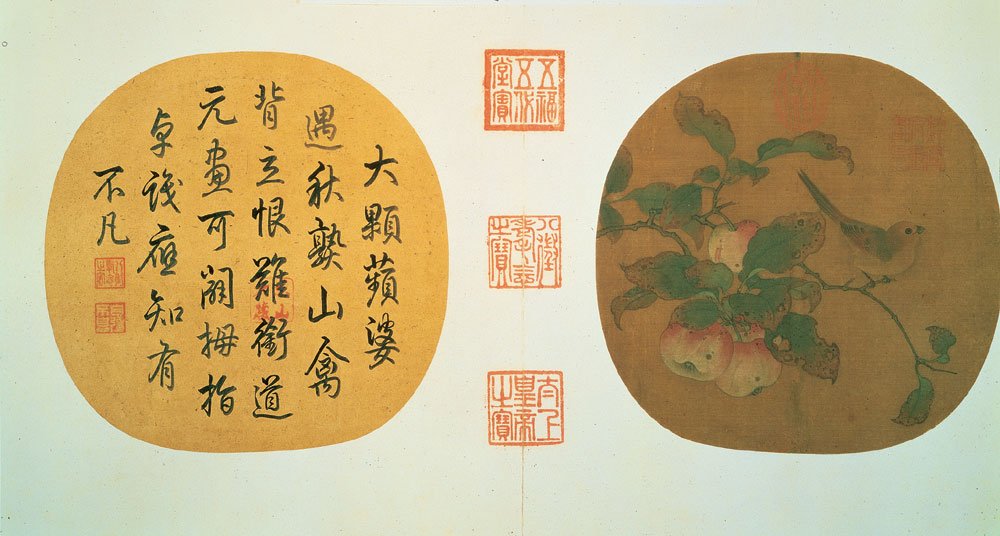 大顆蘋婆
遇秋熟山禽
背立恨難銜道
元畫可拇指
卓識應知有
不凡
五福
五代
堂寶
八徵
耄念
之寶
太上
皇帝
之寶